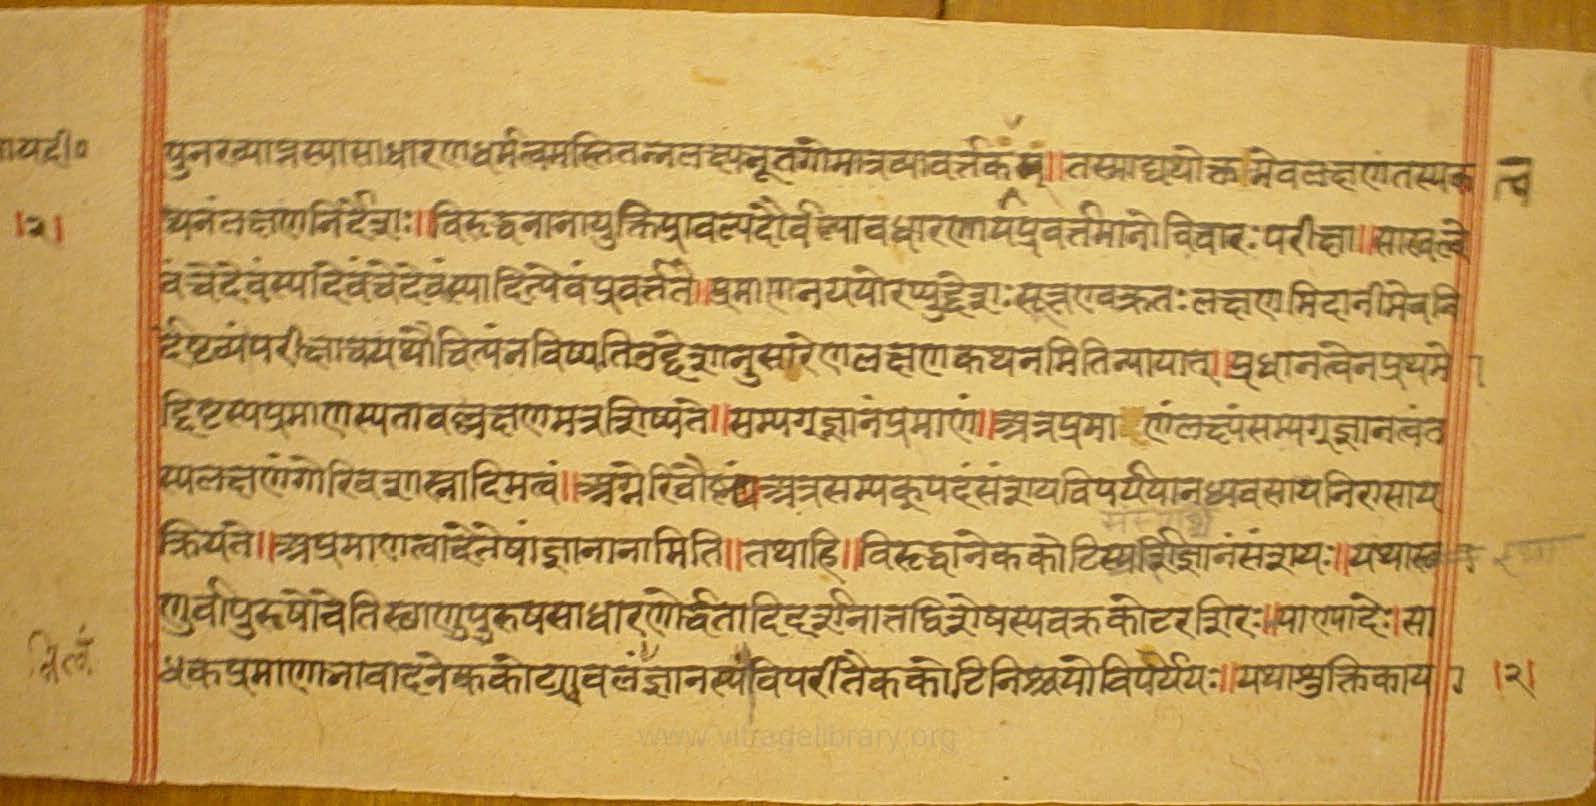 ायदी०
पुनरव्याप्तस्यासाधारणधर्मत्वमस्तितन्नलक्ष्यभूतगोमात्रव्यावर्त्तकं॥तस्माद्यथोक्तमेवलक्षणंतस्यक
त्वं
थनंलक्षणनिर्देशः॥विरुद्धनानायुक्तिप्राबल्यदौर्बल्यावधारणायप्रवर्त्तमानोविचारःपरीक्षा॥साखल्वे
।२।
वंचेदेवंस्यादेवंचेदेवंस्यादित्येवंप्रवर्त्तते॥प्रमाणनययोरप्युद्देशःसूत्रएवकृतःलक्षणमिदानीमेवनि
र्देष्टव्यंपरीक्षाचयथौचित्यंभविष्यतिउद्देशानुसारेणलक्षणकथनमितिन्यायात्॥प्रधानत्वेनप्रथमो
द्दिष्टस्यप्रमाणस्यतावल्लक्षणमत्रशिष्यते॥सम्यग्ज्ञानंप्रमाणं॥अत्रप्रमाणंलक्ष्यंसम्यग्ज्ञानत्वंत
स्यलक्षणंगोरिवशास्नादिमत्वं॥अग्नेरिवौष्ण्यंअत्रसम्यक्पदंसंशयविपर्ययानध्यवसायनिरासाय
क्रियते॥अप्रमाणत्वादेतेषांज्ञानानामिति॥तथाहि॥विरुद्धानेककोटिस्पर्शिज्ञानंसंशयः॥यथास्था
णुर्वापुरुषोवेतिस्थाणुपुरुषसाधारणोर्द्धतादिदर्शनात्तद्विशेषस्यवक्रकोटरशिरः॥पाण्यादेः।सा
धकप्रमाणाभावादनेककोट्यावलंज्ञानस्यविपरीतैककोटिनिश्चयोविपर्ययः॥यथाशुक्तिकाया
।२।
www.vitragelibrary.org